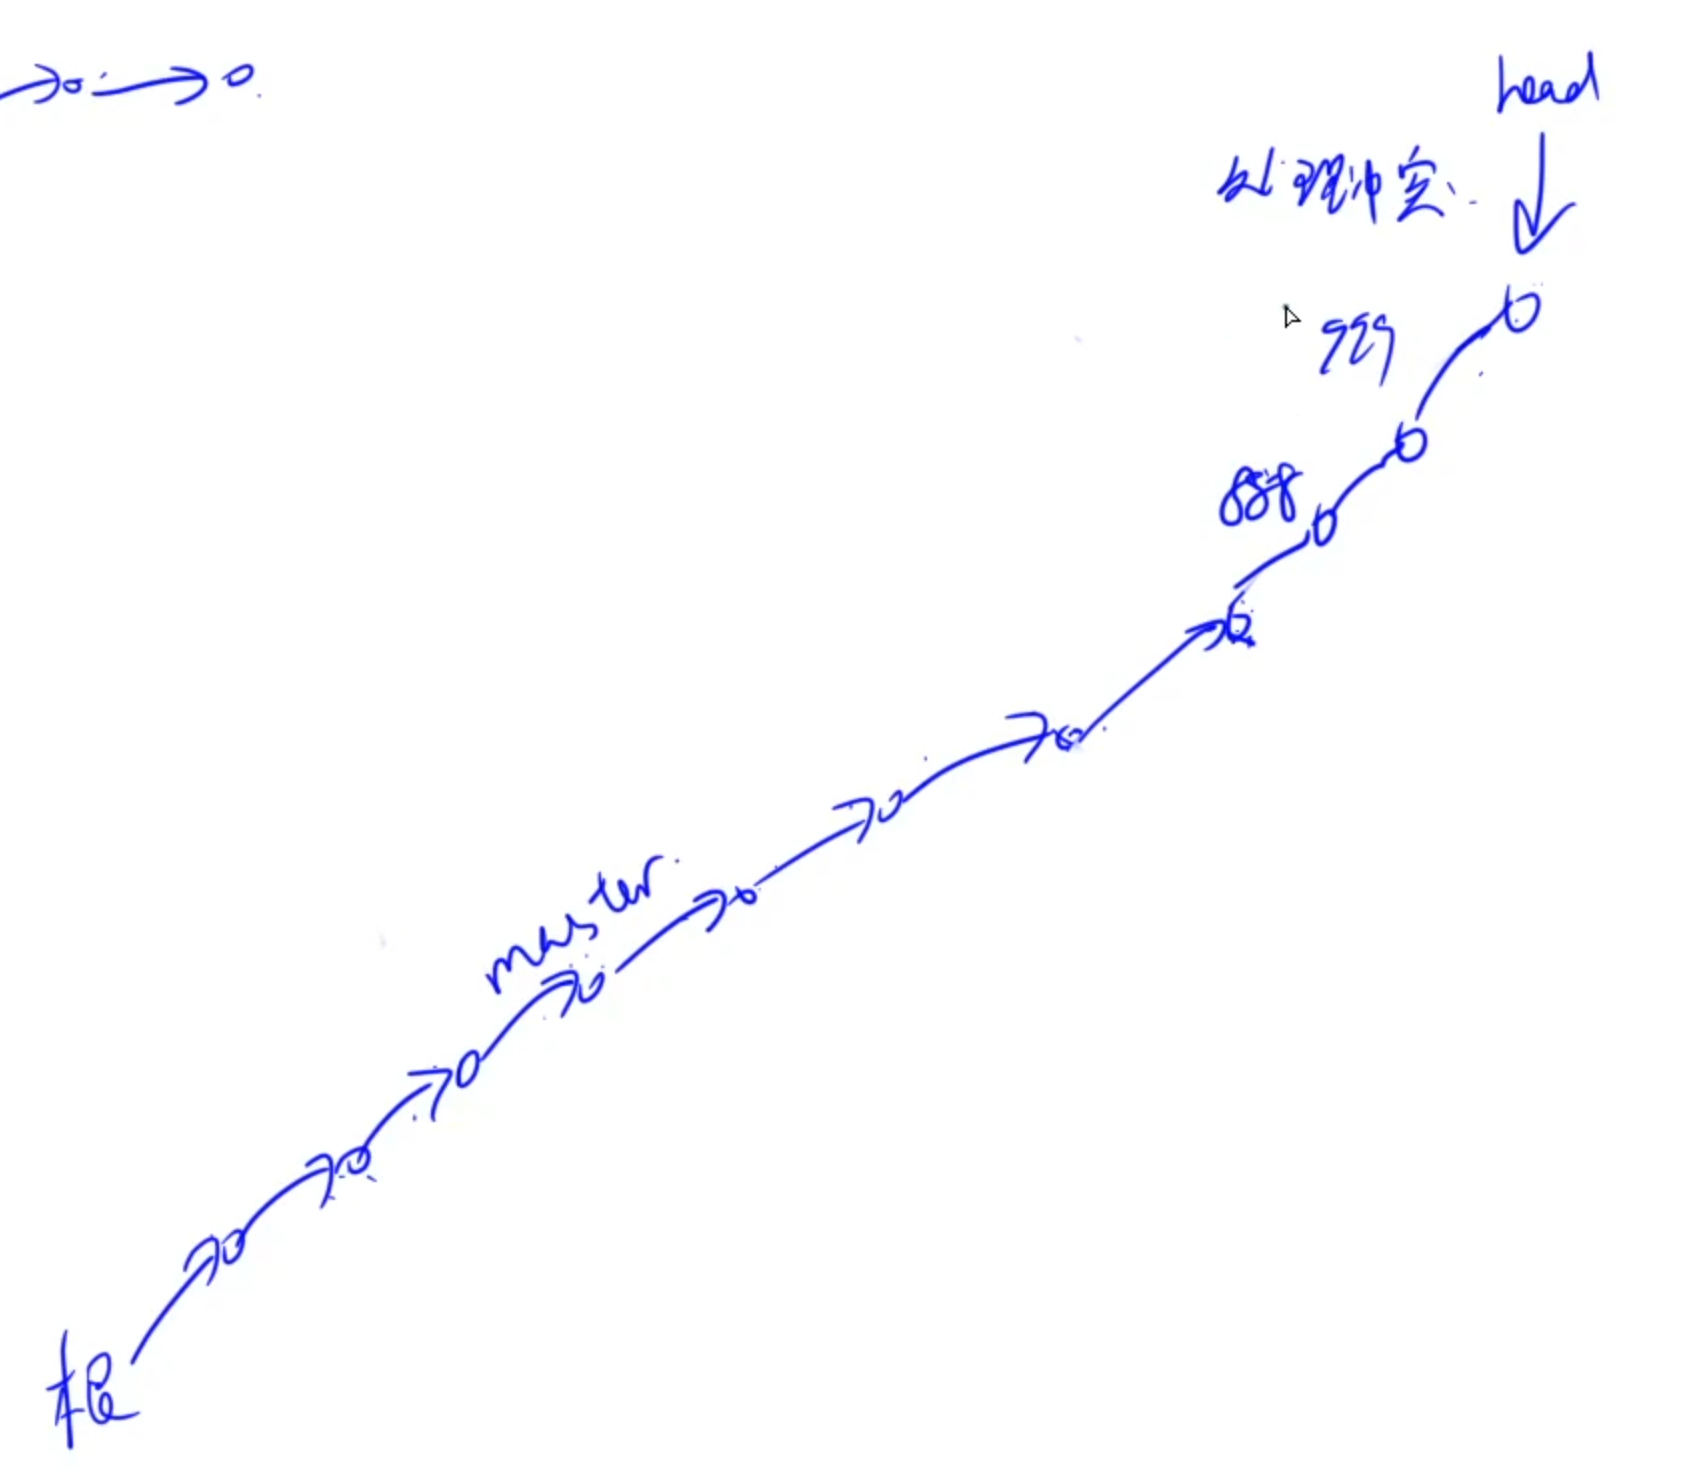 head
处理冲突
999
888
master
根